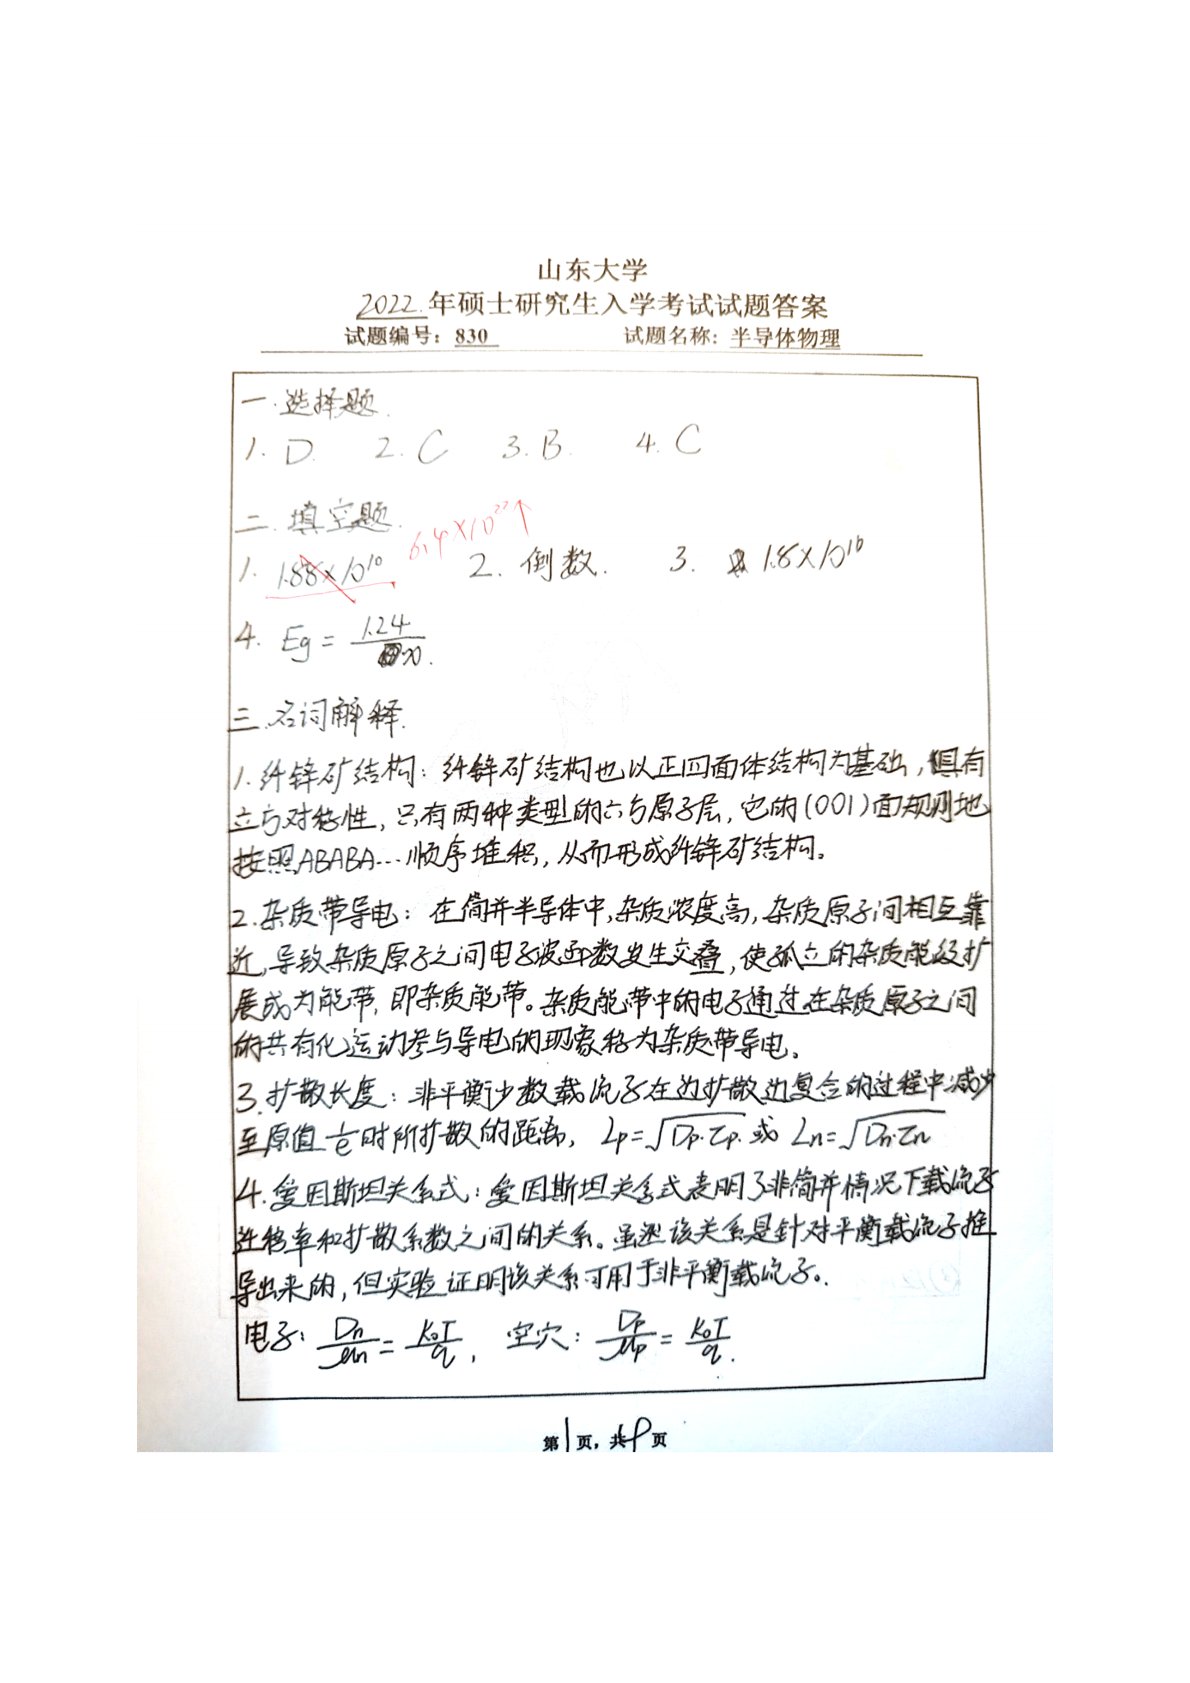 山东大学
2022.年硕士研究生入学考试试题答案
试题编号：830 试题名称：半导体物理
一.选择题.
1. D. 2. C 3. B. 4. C
二.填空题. 6.4×10²²↑
1. 1.88×10¹⁰ 2. 倒数. 3. 1.8×10¹⁶
4. Eg = 1.24/x.
三.名词解释.
1.纤锌矿结构：纤锌矿结构也以正四面体结构为基础，但具有
立方对称性，只有两种类型的六方原子层，它的(001)面规则地
按照ABABA…顺序堆积，从而形成纤锌矿结构。
2.杂质带导电：在简并半导体中，杂质浓度高，杂质原子间相互靠
近，导致杂质原子之间电子波函数发生交叠，使孤立的杂质能级扩
展成为能带，即杂质能带。杂质能带中的电子通过在杂质原子之间
的共有化运动参与导电的现象称为杂质带导电。
3.扩散长度：非平衡少数载流子在边扩散边复合的过程中减少
至原值 1/e 时所扩散的距离，Lp=√Dp·τp. 或 Ln=√Dn·τn
4.爱因斯坦关系式：爱因斯坦关系式表明了非简并情况下载流子
迁移率和扩散系数之间的关系。虽然该关系是针对平衡载流子推
导出来的，但实验证明该关系可用于非平衡载流子。
电子：Dn/μn = k₀T/q, 空穴：Dp/μp = k₀T/q.
第1页，共9页